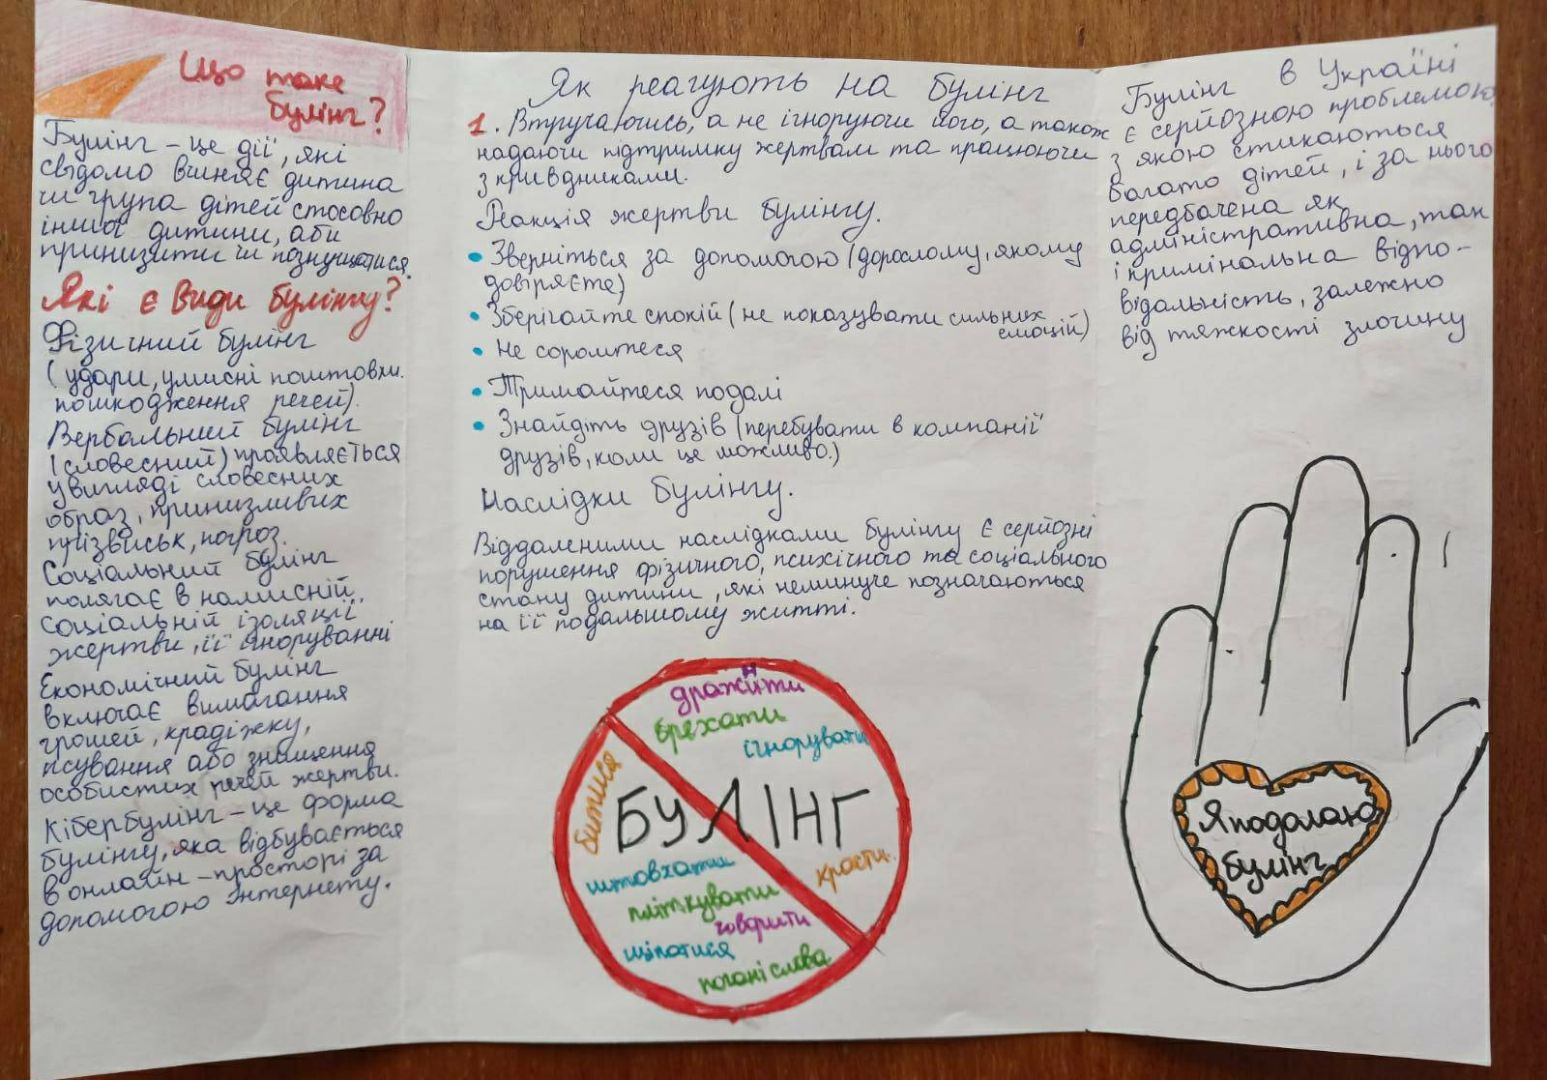 Що таке
булінг?
Булінг – це дії, які
свідомо вчиняє дитина
чи група дітей стосовно
іншої дитини, аби
принизити чи познущатися.
Які є види булінгу?
Фізичний булінг
(удари, умисні поштовхи.
пошкодження речей).
Вербальний булінг
(словесний) проявляється
у вигляді словесних
образ, принизливих
прізвиськ, погроз.
Соціальний булінг
полягає в намисній,
соціальній ізоляції
жертви, її ігноруванні
Економічний булінг
включає вимагання
грошей, крадіжку,
псування або знищення
особистих речей жертви.
Кібербулінг – це форма
булінгу, яка відбувається
в онлайн – просторі за
допомогою Інтернету.
Як реагують на булінг
1. Втручаючись, а не ігноруючи його, а також
надаючи підтримку жертвам та працюючи
з кривдниками.
Реакція жертви булінгу.
• Зверніться за допомогою (дорослому, якому
довіряєте)
• Зберігайте спокій (не показувати сильних
емоцій)
• Не соромтеся
• Тримайтеся подалі
• Знайдіть друзів (перебувати в компанії
друзів, коли це можливо.)
Наслідки булінгу.
Віддаленими наслідками булінгу є серйозні
порушення фізичного, психічного та соціального
стану дитини, які неминуче позначаються
на її подальшому житті.
брехати
ігнорувати
битися
БУЛІНГ
штовхати
красти
пліткувати
говорити
щипатися
погані слова
Булінг в Україні
є серйозною проблемою,
з якою стикаються
багато дітей, і за нього
передбачена як
адміністративна, так
і кримінальна відпо-
відальність, залежно
від тяжкості злочину
Я подолаю
булінг